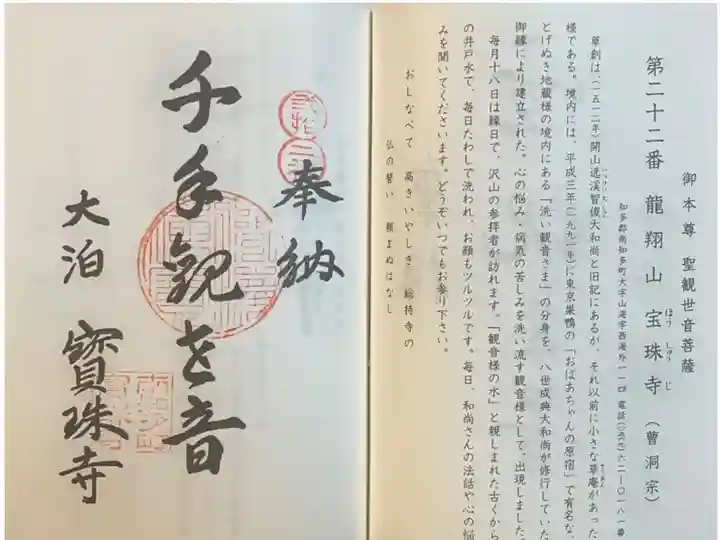 御本尊 聖観世音菩薩
第二十二番 龍翔山 宝珠寺(曹洞宗)
ほう しゅう じ
知多郡南知多町大字山海字西海外一一四 電話 六二ー〇一八一番
草創は、(一五一二年)開山 渓智俊大和尚と旧記にあるが、それ以前に小さな草庵があった
様である。境内には、平成三年(一九九一年)に東京巣鴨の「おばあちゃんの原宿」で有名な、
とげぬき地蔵様の境内にある「洗い観音さま」の分身を、八世成典大和尚が修行していた
御縁により建立された。心の悩み・病気の苦しみを洗い流す観音様として。出現しました。
毎月十八日は縁日で、沢山の参拝者が訪れます。「観音様の水」と親しまれた古くから
の井戸水で、毎日たわしで洗われ、お顔もツルツルです。毎日、和尚さんの法話や心の悩
みを聞いてくださいます。どうぞいつでもお参り下さい。
おしなべて 高きいやしき 総持寺の
仏の誓い 頼まぬはなし
奉納
千手観世音
大泊 寳珠寺